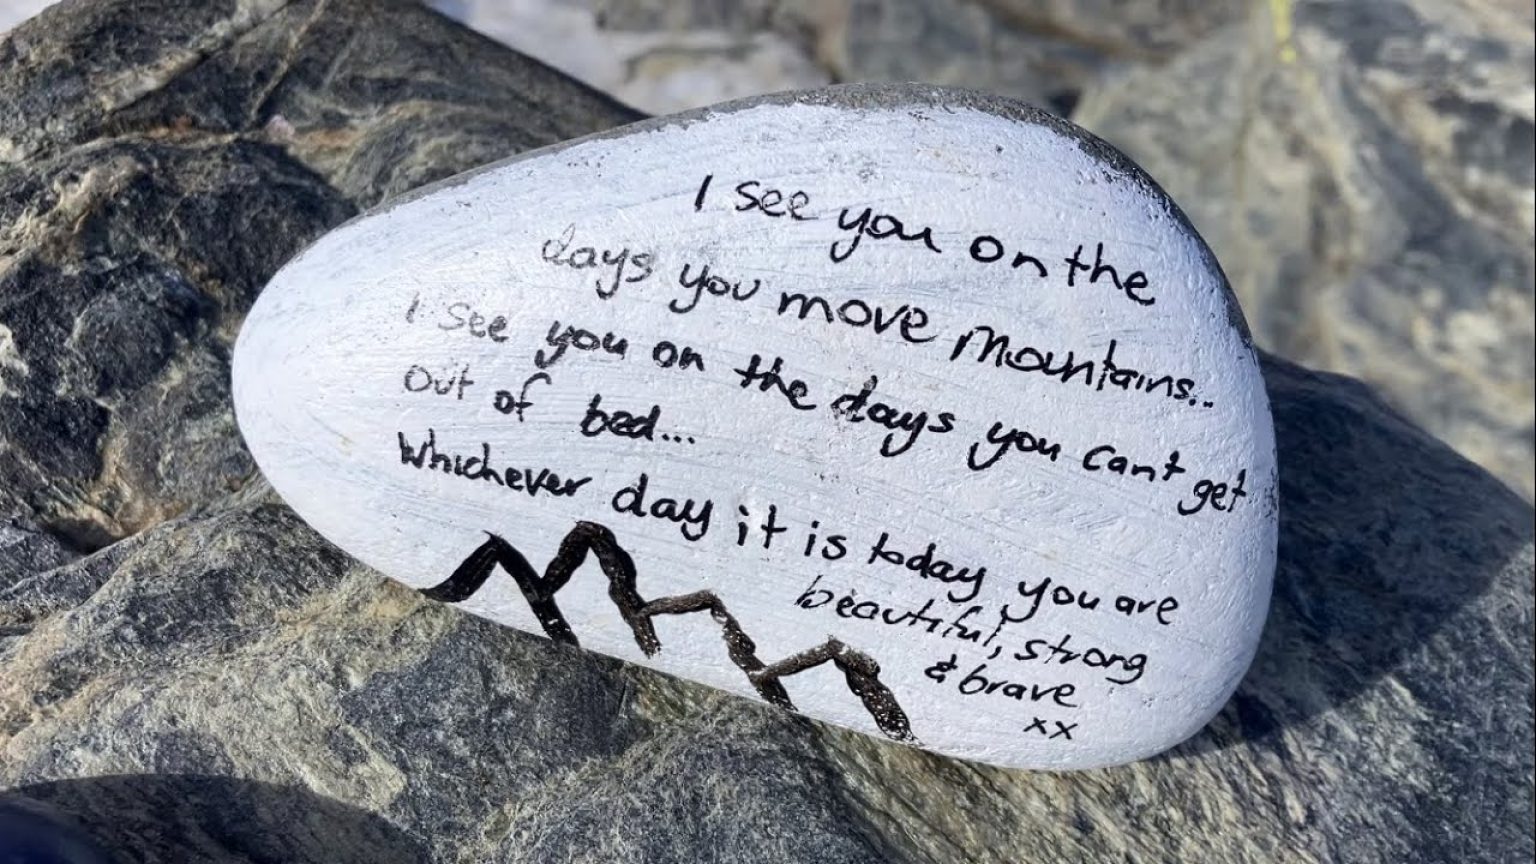 I see you on the
days you move mountains...
I see you on the days you can't get
out of bed...
Whichever day it is today you are
beautiful, strong
& brave
xx